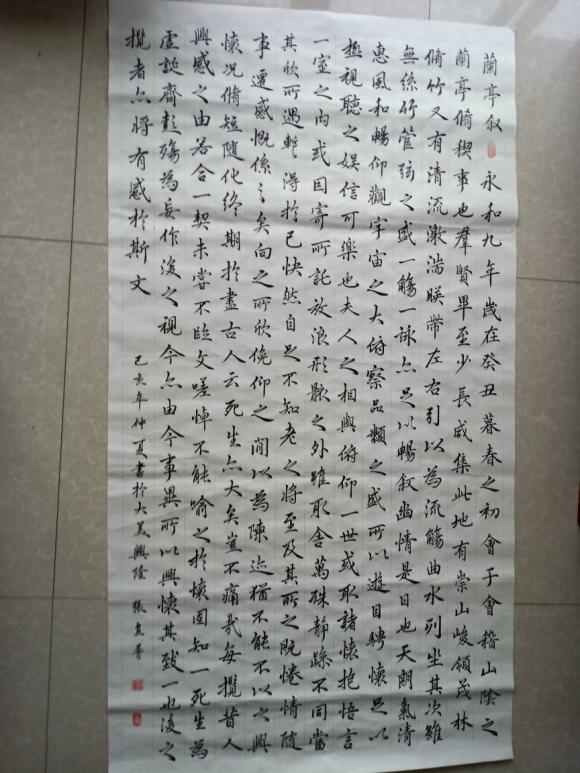 蘭亭叙 永和九年歲在癸丑暮春之初會于會稽山陰之
蘭亭脩稧事也羣賢畢至少長咸集此地有崇山峻領茂林
脩竹又有清流激湍暎帶左右引以為流觴曲水列坐其次雖
無絲竹管弦之盛一觴一詠亦足以暢叙幽情是日也天朗氣清
惠風和暢仰觀宇宙之大俯察品類之盛所以遊目騁懷足以
極視聽之娱信可樂也夫人之相與俯仰一世或取諸懷抱悟言
一室之内或因寄所託放浪形骸之外雖取舍萬殊靜躁不同當
其欣所遇蹔得於己快然自足不知老之將至及其所之既惓情隨
事遷感慨係之矣向之所欣俛仰之閒以為陳迹猶不能不以之興
懷況脩短隨化終期於盡古人云死生亦大矣豈不痛哉每攬昔人
興感之由若合一契未嘗不臨文嗟悼不能喻之於懷固知一死生為
虛誕齊彭殤為妄作後之視今亦由今事異所以興懷其致一也後之
攬者亦將有感於斯文
己亥年仲夏書於大美興隆 張